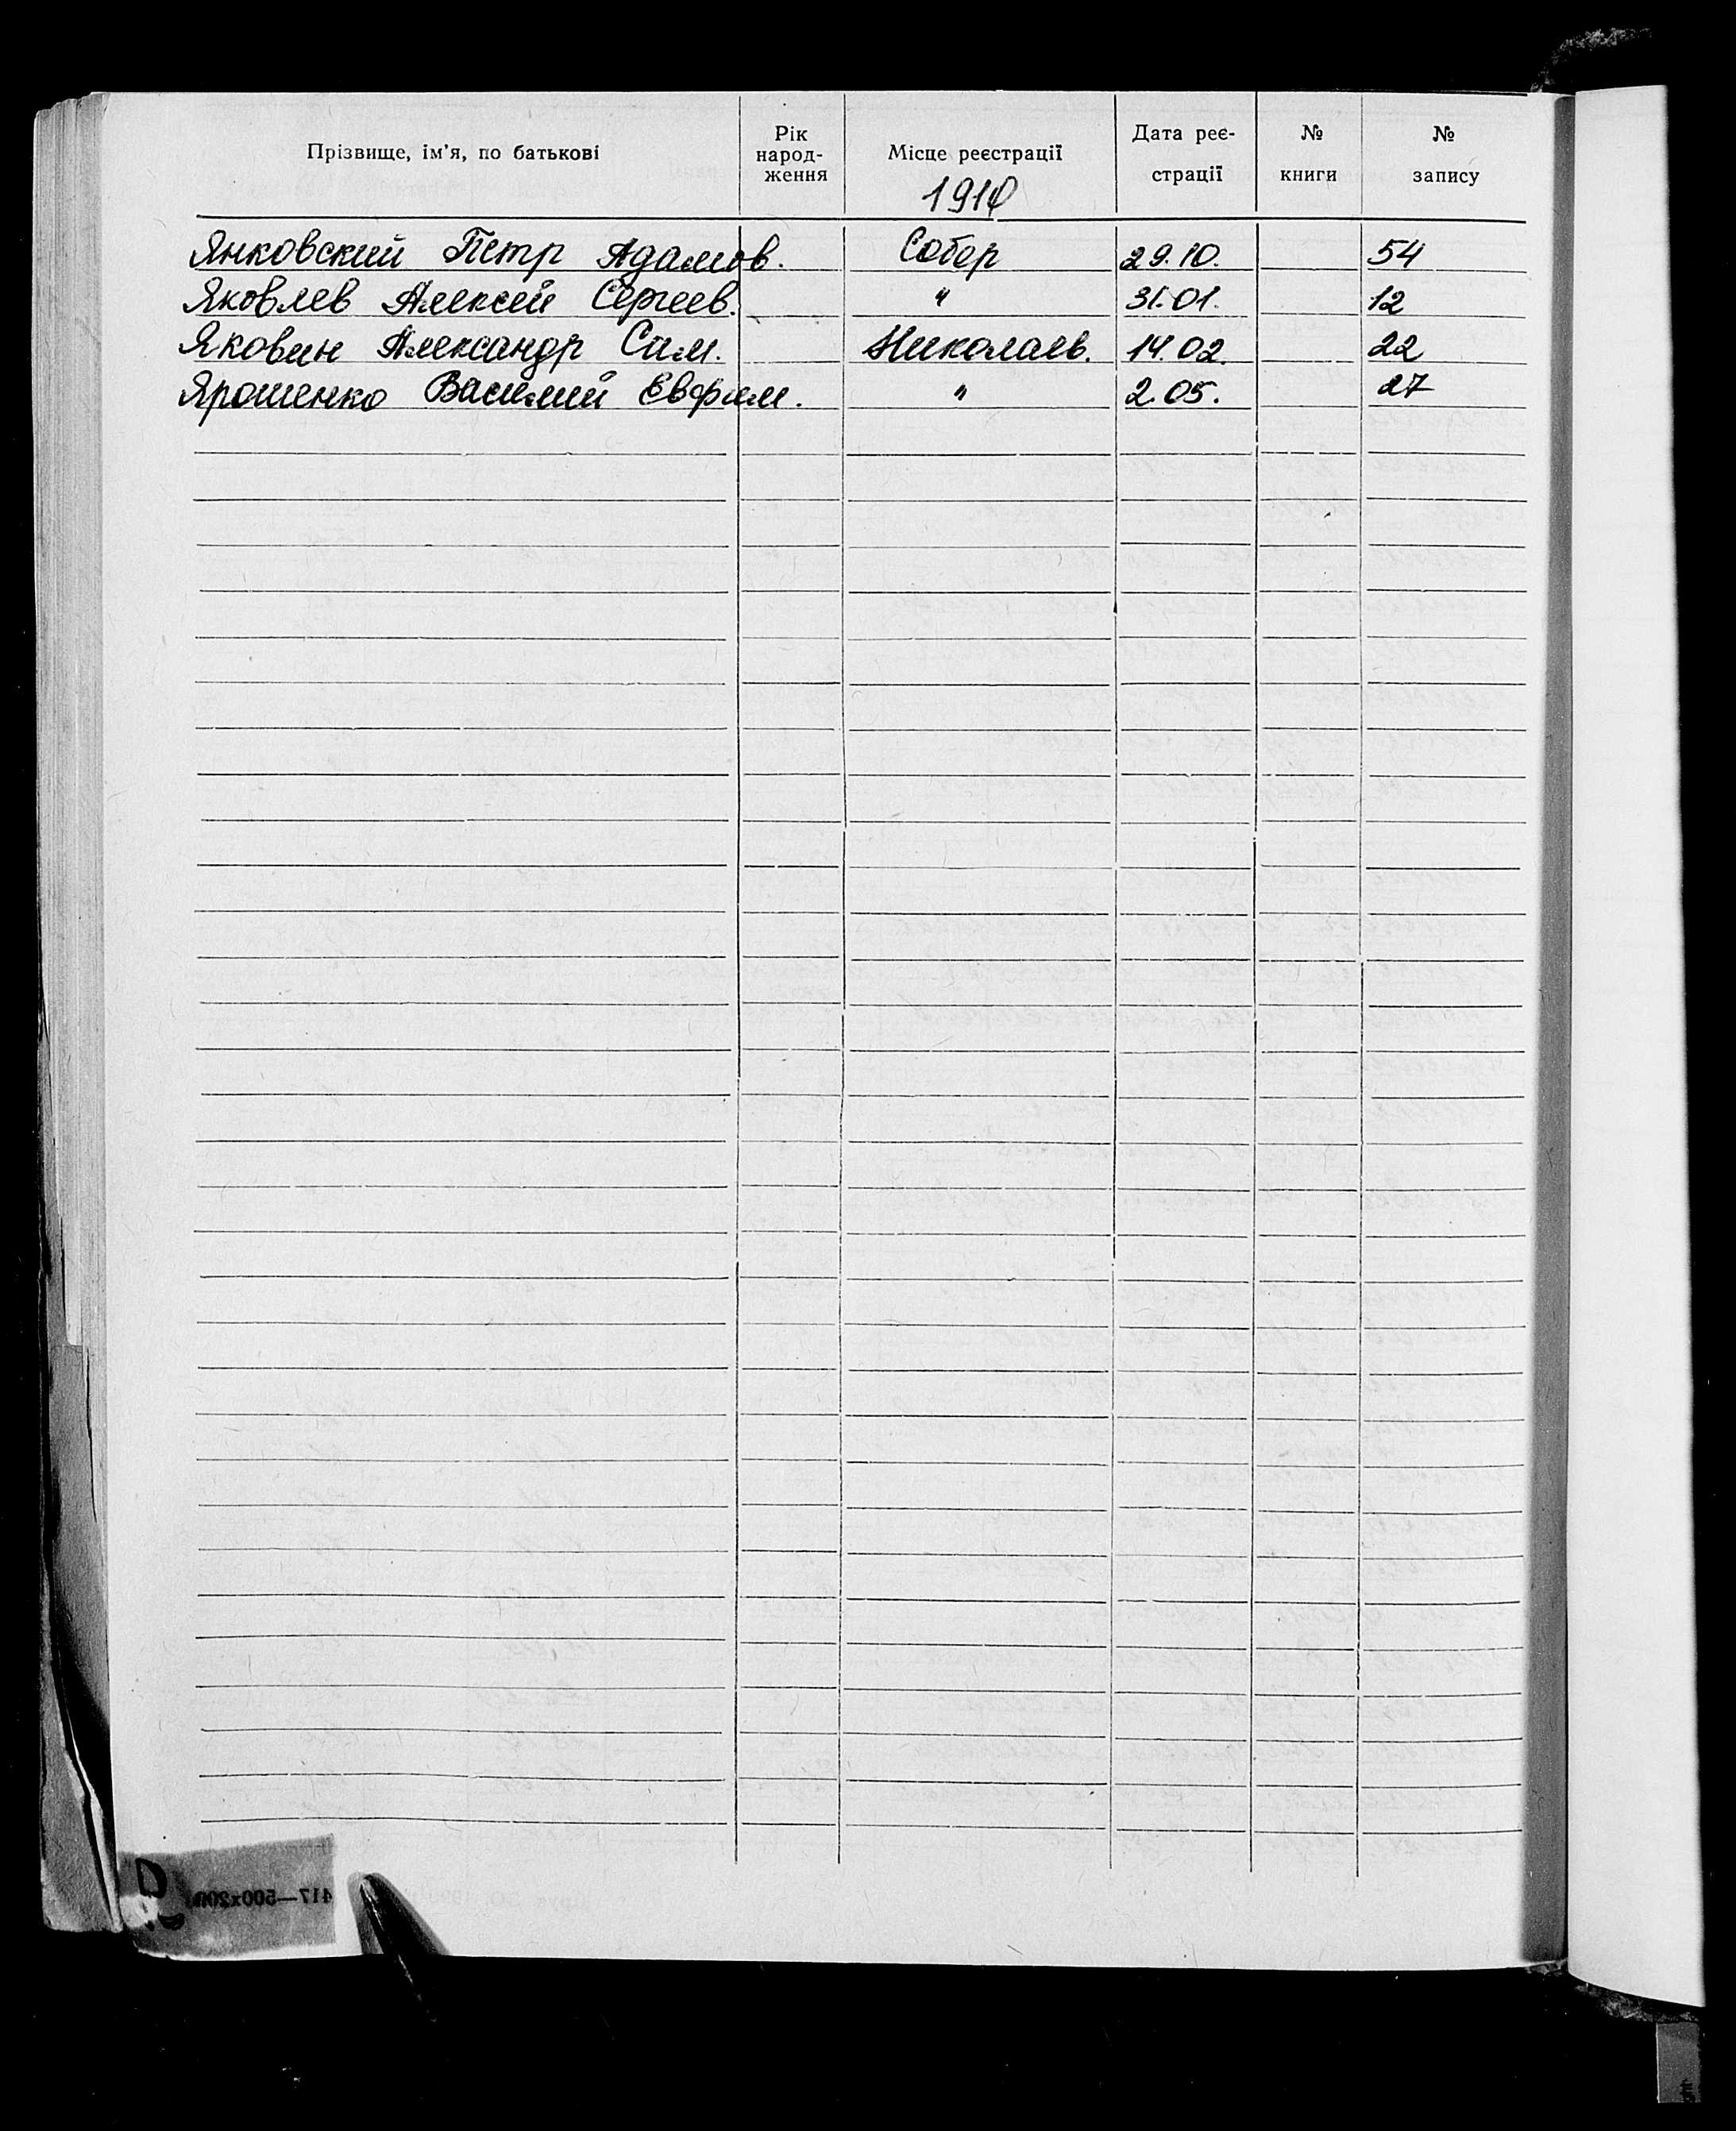 Прізвище, ім'я, по батькові Рік народ-ження Місце реєстрації Дата реє-страції № книги № запису
Янковский Петр Адамов. Собор 29.10. 54
Яковлев Алексей Сергеев. " 31.01. 12
Яковин Александр Сам. Николаев. 14.02. 22
Ярошенко Василий Евфим. " 2.05. 27